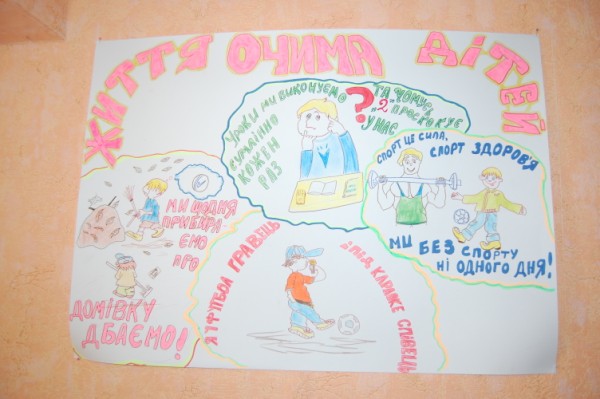 ЖИТТЯ ОЧИМА ДІТЕЙ
УРОКИ МИ ВИКОНУЄМО
СУМЛІННО
КОЖЕН
РАЗ
?
ТА ЧОМУСЬ
„2” ПРОСКОКУЄ
У НАС
СПОРТ ЦЕ СИЛА,
СПОРТ ЗДОРОВ'Я
МИ БЕЗ СПОРТУ
НІ ОДНОГО ДНЯ!
МИ ЩОДНЯ
ПРИБИРА
ЄМО
ПРО
ДОМІВКУ
ДБАЄМО!
Я І ФУТБОЛ ГРАВЕЦЬ
СПІВЕЦЬ